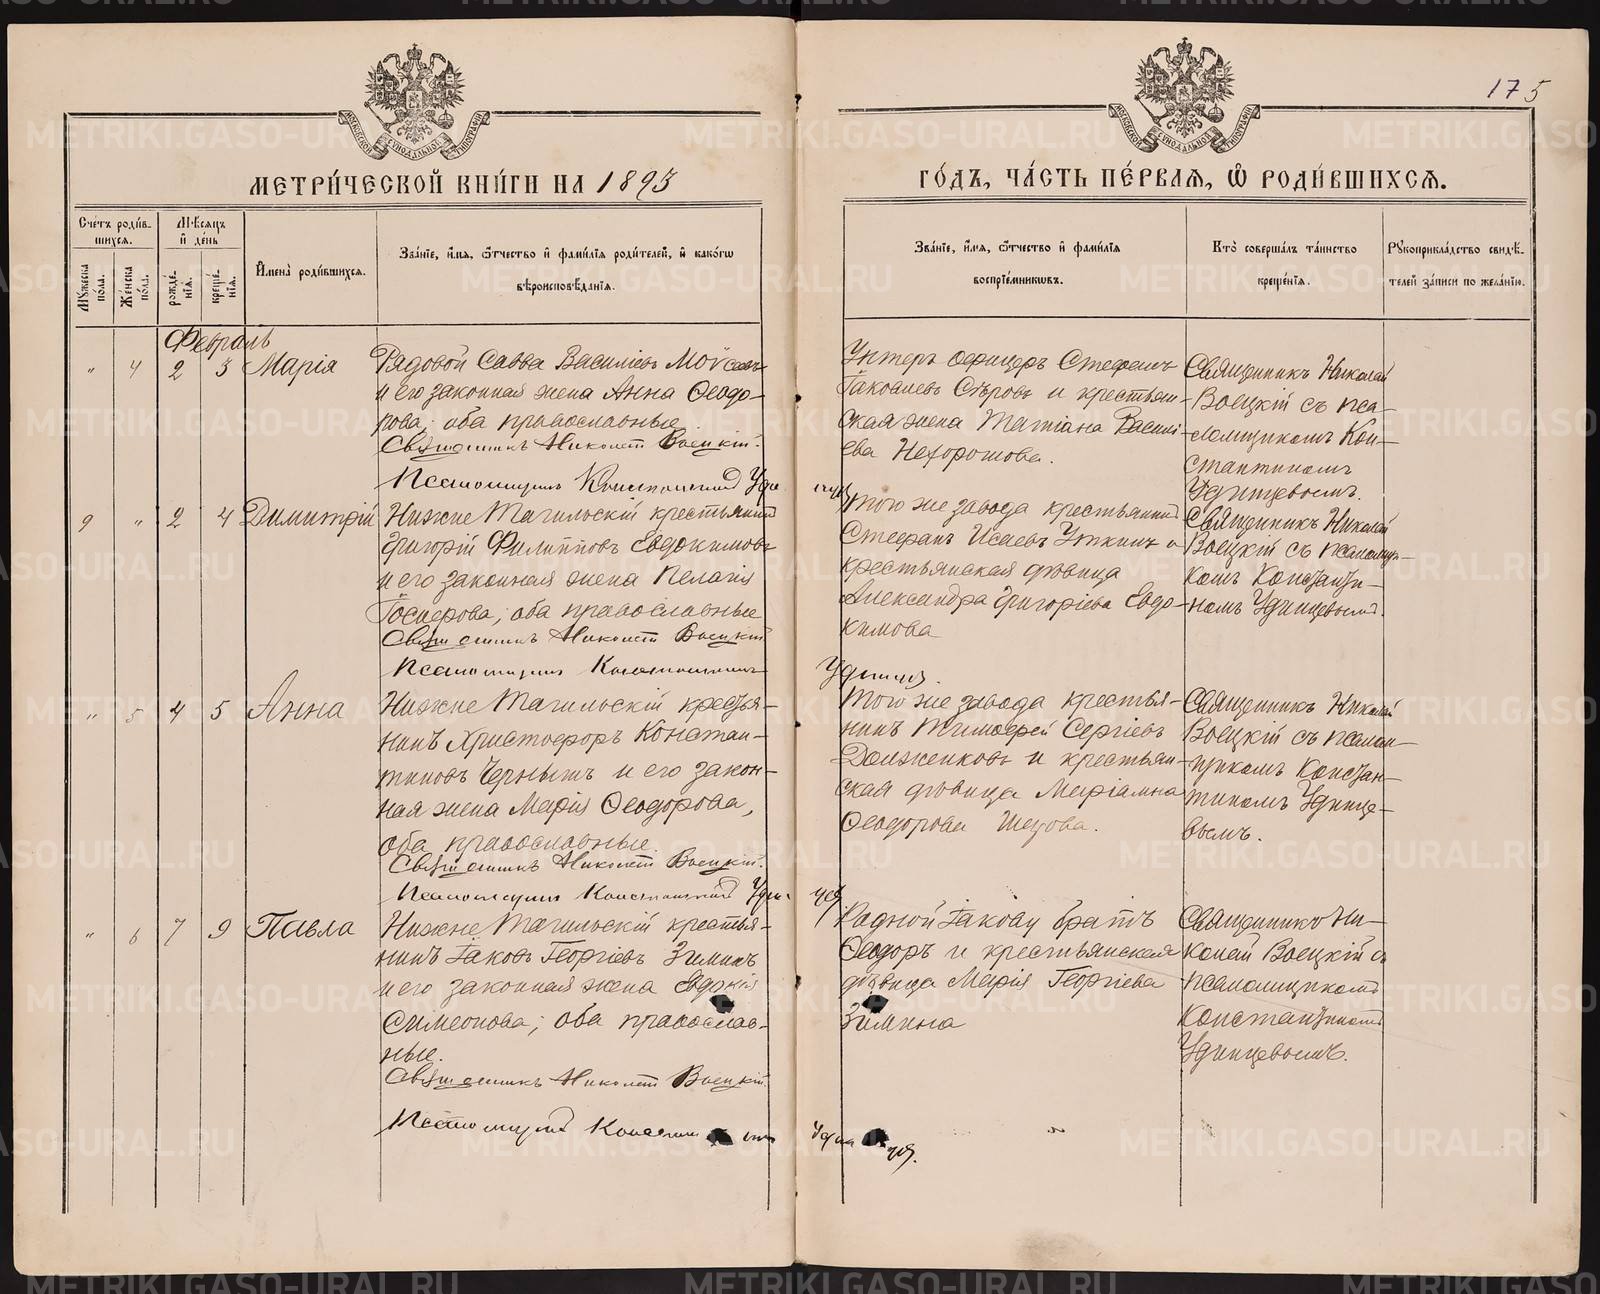 175
МЕТРИ́ЧЕСКОЙ КНИ́ГИ НА 1893
ГО́ДЪ, ЧА́СТЬ ПЕ́РВАЯ, Ѡ РОДИ́ВШИХСЯ.
Сче́тъ роди́в-
шихся.
Мѣсяцъ
и день
Имена̀ роди́вшихся.
Зва́нїе, и́мя, ѻ҆́тчество и фами́лїя роди́телей, и како́гѡ
вѣроисповѣ́данїя.
Му́жеска по́ла.
Же́нска по́ла.
рожде́-нїя.
креще́-нїя.
Зва́нїе, и́мя, ѻ҆́тчество и фами́лїя
воспрїе́мниковъ.
Кто̀ соверша́лъ та́инство
креще́нїя.
Рукоприкла́дство свидѣ́-
телей за́писи по жела́нїю.
Февраль
" 4 2 3 Марія
Рядовой Савва Василіевъ Моисеевъ
и его законная жена Анна Ѳеодо-
рова; оба православные
Священникъ Николай Воецкій.
Псаломщикъ Константинъ Удин
цев
Унтеръ офицеръ Стефанъ
Іаковлевъ Сѣровъ и крестьян-
ская жена Татіана Василі-
ева Нехорошова.
Священникъ Николай
Воецкій съ пса-
ломщикомъ Кон-
стантиномъ
Удинцевымъ.
9 " 2 4 Димитрій
Нижне Тагильскій крестьянинъ
Григорій Филипповъ Евдокимовъ
и его законная жена Пелагія
оба православные
Священникъ Николай Воецкій
Псаломщикъ Константинъ
Удинцев.
того же завода крестьянинъ
Стефанъ Исаевъ Уткинъ и
крестьянская дѣвица
Александра Григоріева Евдо-
кимова
Священникъ Николай
Воецкій съ псаломщи-
комъ Константи-
номъ Удинцевымъ.
" 5 4 5 Анна
Нижне Тагильскій крестья-
нинъ Христофоръ Констан-
тиновъ Чернышъ и его закон-
ная жена Марія Ѳеодорова,
оба православные.
Священникъ Николай Воецкій.
Псаломщикъ Константинъ Удин
цев
того же завода крестья-
нинъ Тимофей Сергіевъ
Долженковъ и крестьян-
ская дѣвица Маріамна
Ѳеодорова Шецова.
Священникъ Николай
Воецкій съ псалом-
щикомъ Констан-
тиномъ Удинце-
вымъ.
" 6 7 9 Павла
Нижне Тагильскій крестья-
нинъ Іаковъ Георгіевъ Зиминъ
и его законная жена Евдокія
Симеонова; оба православ-
ные.
Священникъ Николай Воецкій.
Псаломщикъ Константинъ
Удинцев.
Родной Іакову братъ
Ѳеодоръ и крестьянская
дѣвица Марія Георгіева
Зимина
Священникъ Ни-
колай Воецкій съ
псаломщикомъ
Константиномъ
Удинцевымъ.
METRIKI.GASO-URAL.RU